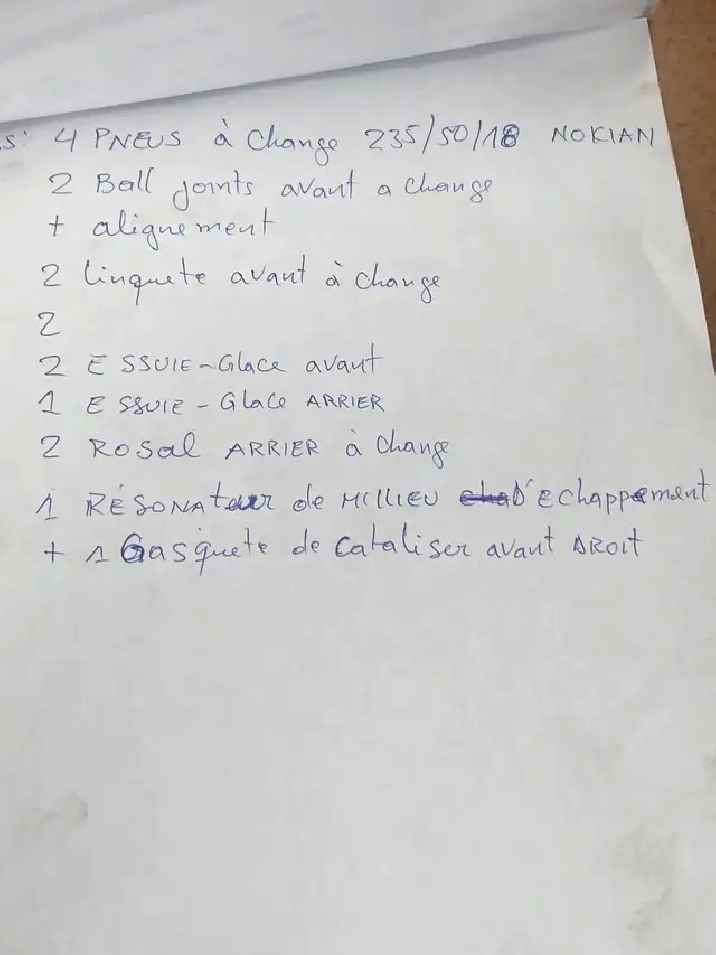 s: 4 PNEUS à change 235/50/18 NOKIAN
2 Ball joints avant a change
+ alignement
2 linquete avant à change
2
2 ESSUIE-Glace avant
1 ESSUIE-Glace ARRIER
2 ROSAL ARRIER à change
1 RÉSONATEUR de MILLIEU D'echappement
+ 1 Gasquete de cataliser avant DROIT